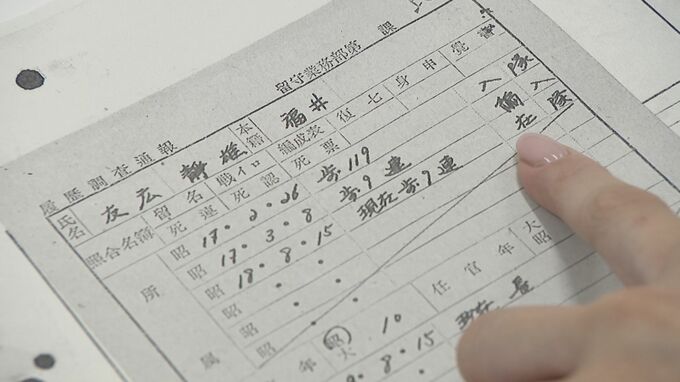 留守業務部第 課
履歴調査通報 本籍 福井
氏名 友広 静雄 編成表 復七身申覚
照合名簿 留名 戦イロ 死票
死連 死認
所属
昭 17.2.26 歩119 入隊
昭 17.3.8 歩9連 入隊
昭 18.8.15 現在歩9連 在隊
昭
昭
昭
任官年 大昭
年 大昭 10
9.8.15 現在